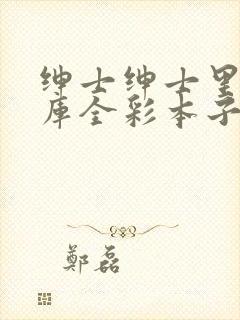 绅士绅士里
库全彩本子
鄭磊